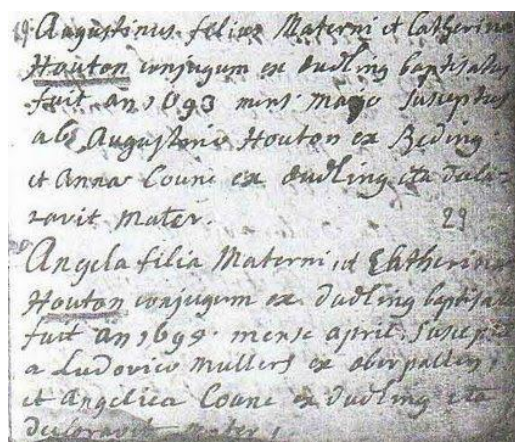 Augustinus filius Materni et Catherina
Houton conjugum ex dudling baptisatus
fuit an 1693 mens majo susceptus
ab Augustino Houton ex Beding
et Anna Coune ex dudling ita decla-
ravit mater.
29
Angela filia Materni, et Catherina
Houton conjugum ex dudling baptisata
fuit an 1695 mense april. suscept
a Ludovico Mullers ex oberpallen,
et Angelica Coune ex dudling ita
declaravit mater,